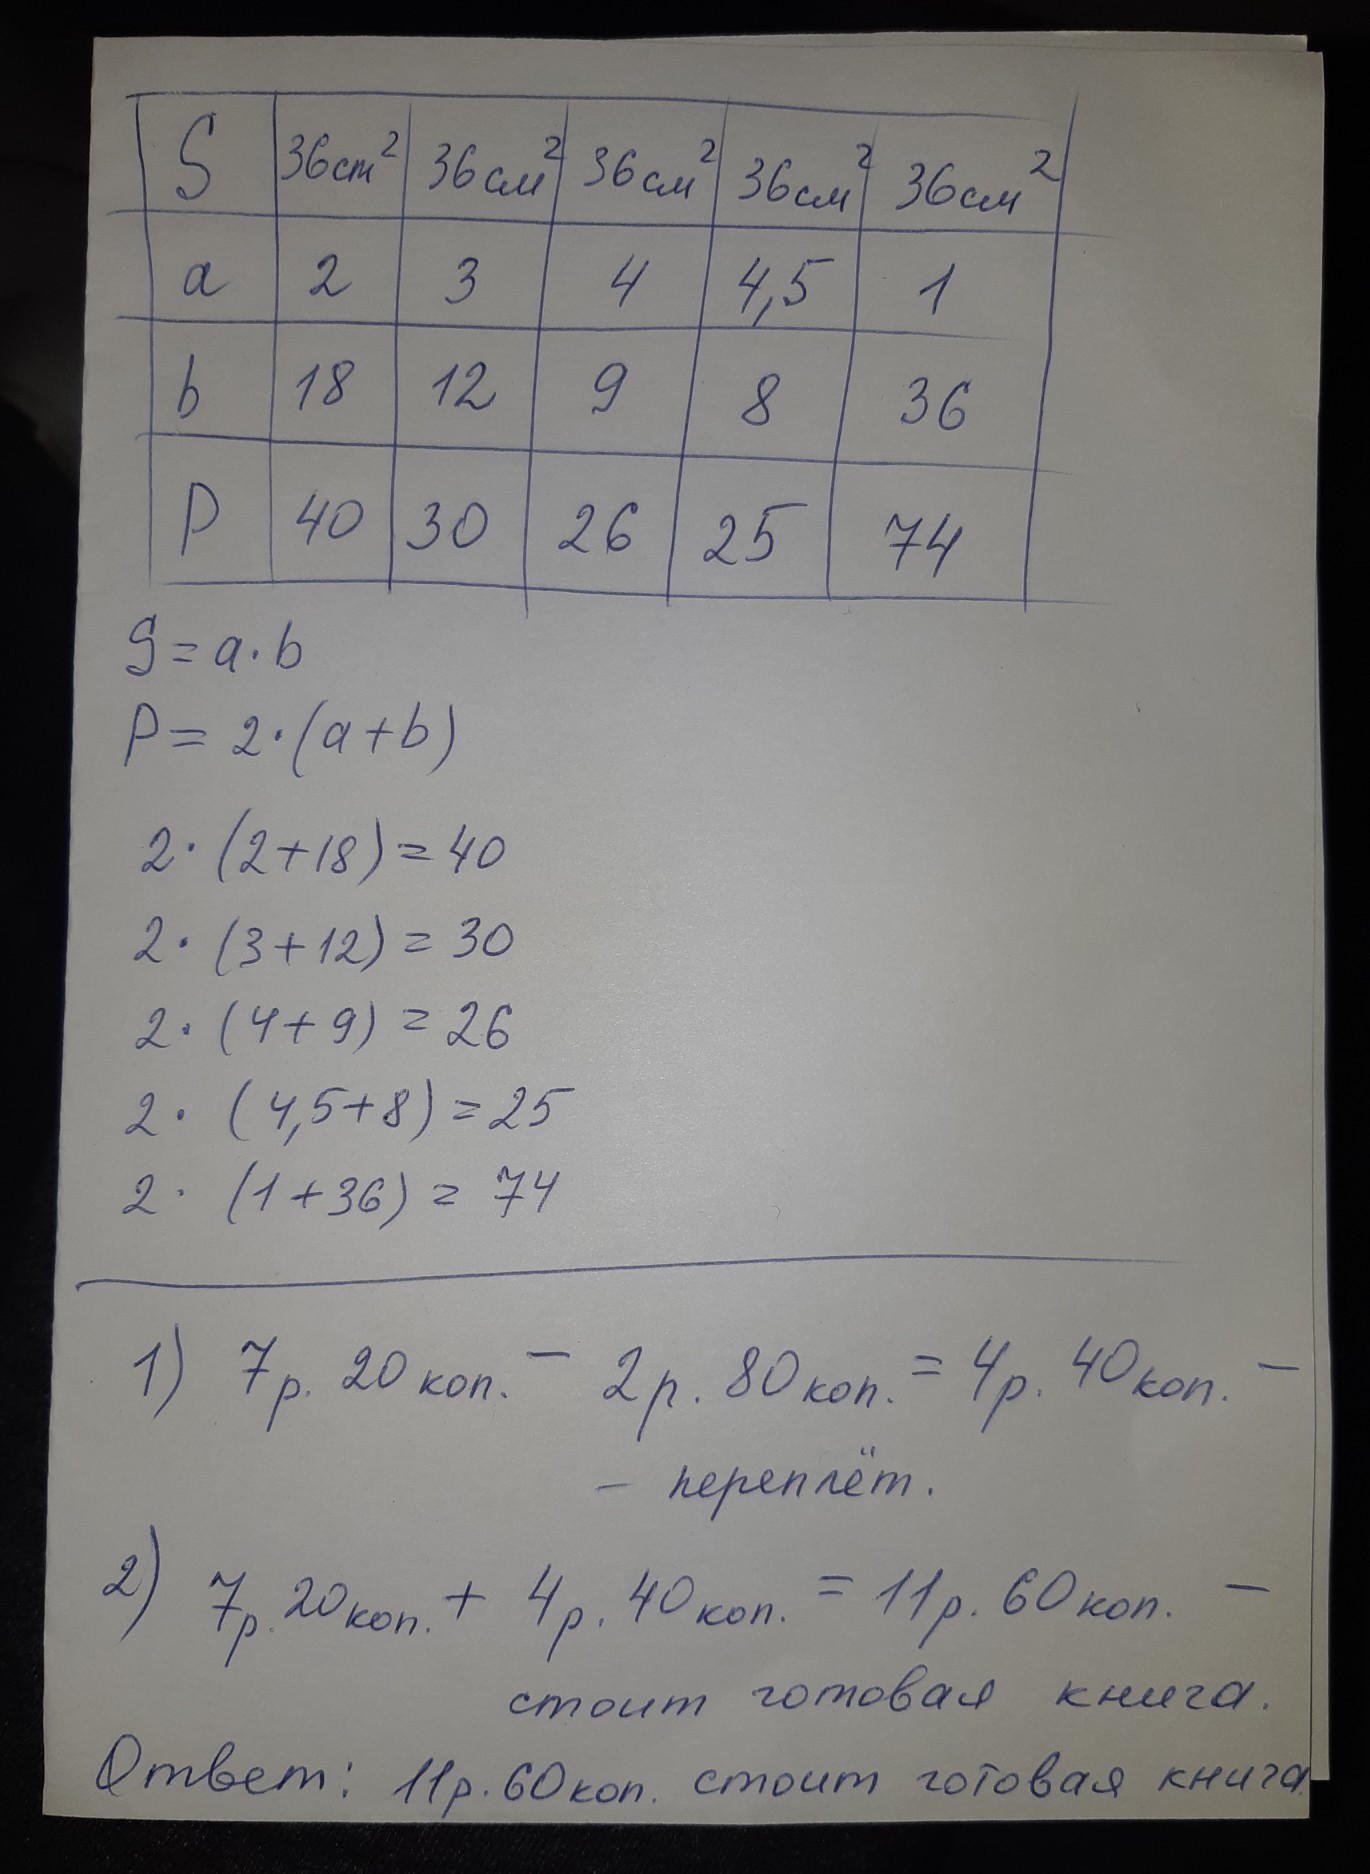 S 36см² 36см² 36см² 36см² 36см²
a 2 3 4 4,5 1
b 18 12 9 8 36
P 40 30 26 25 74
S = a·b
P = 2·(a+b)
2·(2+18)=40
2·(3+12)=30
2·(4+9)=26
2·(4,5+8)=25
2·(1+36)=74
1) 7р. 20коп. – 2р. 80коп. = 4р. 40коп. –
– переплёт.
2) 7р. 20коп. + 4р. 40коп. = 11р. 60коп. –
стоит готовая книга.
Ответ: 11р. 60коп. стоит готовая книга.